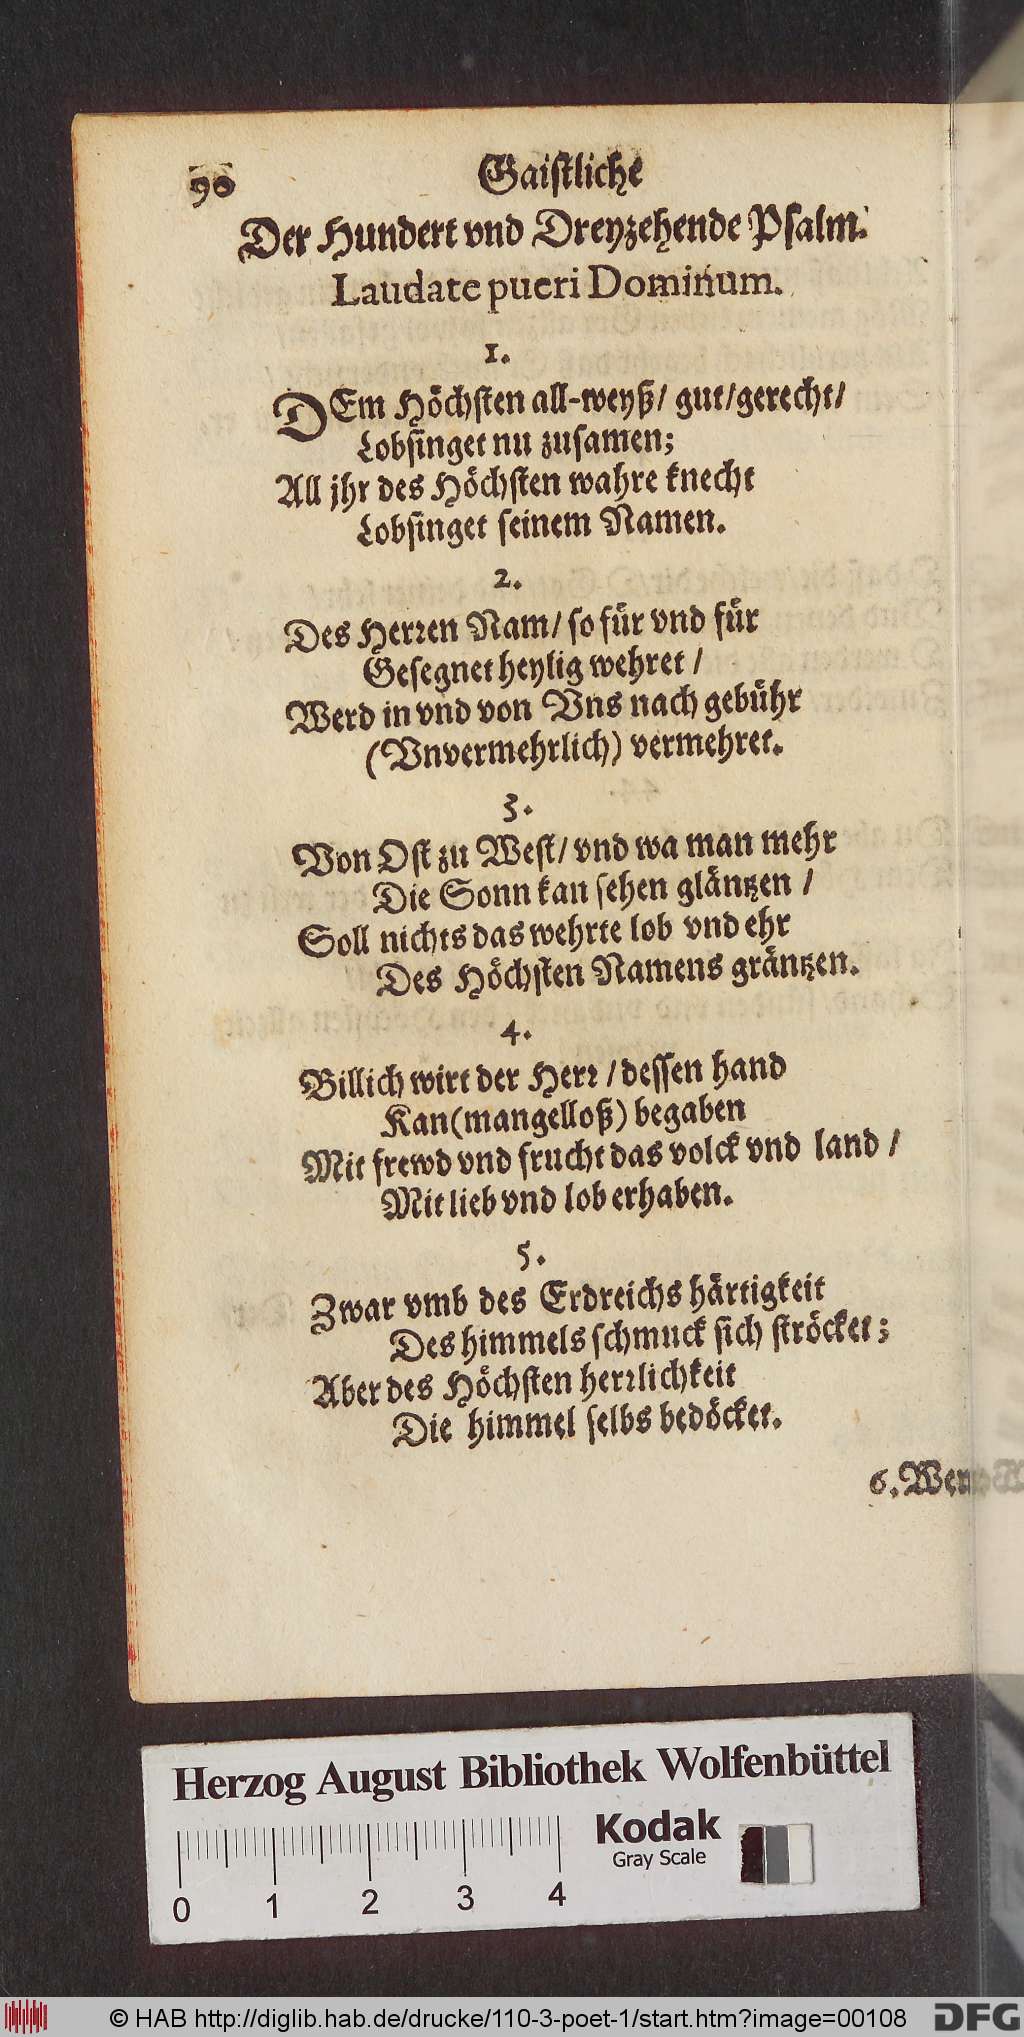 90 Gaistliche
Der Hundert vnd Dreyzehende Psalm.
Laudate pueri Dominum.
1.
DEm Höchsten all-weyß/ gut/gerecht/
Lobsinget nu zusamen;
All jhr des Höchsten wahre knecht
Lobsinget seinem Namen.
2.
Des Herren Nam/ so für vnd für
Gesegnet heylig wehret /
Werd in vnd von Vns nach gebühr
(Vnvermehrlich) vermehret.
3.
Von Ost zu West/ vnd wa man mehr
Die Sonn kan sehen gläntzen /
Soll nichts das wehrte lob vnd ehr
Des Höchsten Namens gräntzen.
4.
Billich wirt der Herr / dessen hand
Kan (mangelloß) begaben
Mit frewd vnd frucht das volck vnd land /
Mit lieb vnd lob erhaben.
5.
Zwar vmb des Erdreichs härtigkeit
Des himmels schmuck sich ströcket;
Aber des Höchsten herrlichkeit
Die himmel selbs bedöcket.
6. Wer
Herzog August Bibliothek Wolfenbüttel
Kodak
Gray Scale
0 1 2 3 4
© HAB http://diglib.hab.de/drucke/110-3-poet-1/start.htm?image=00108
DFG